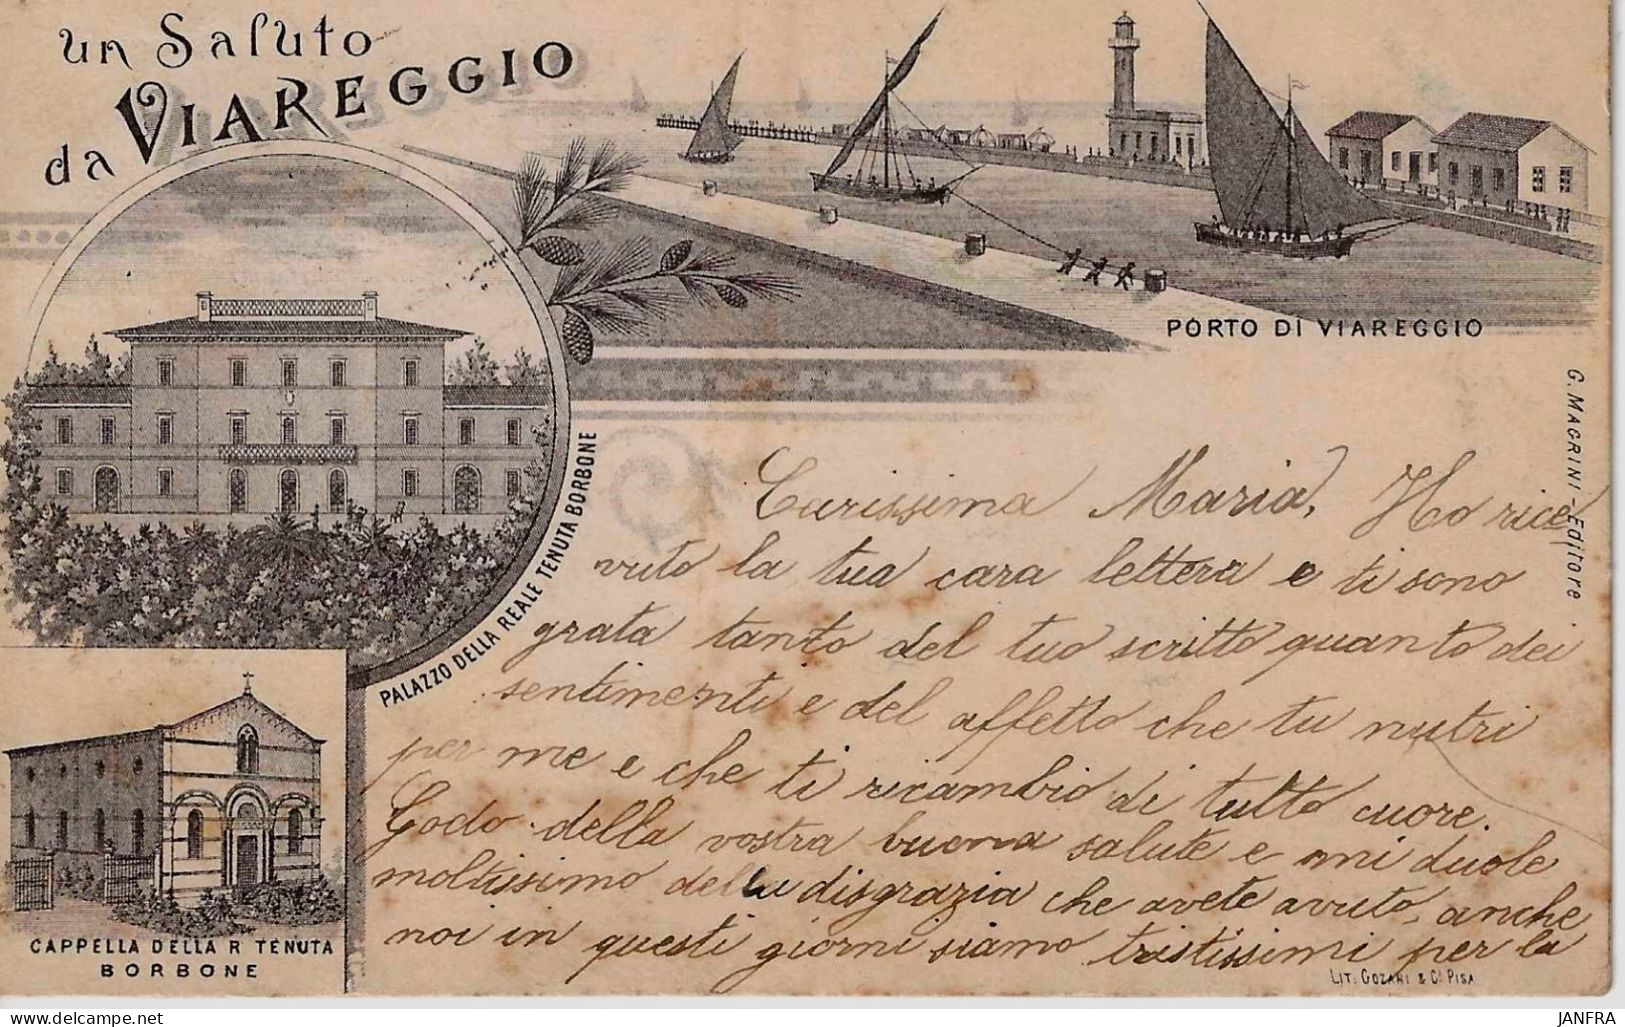 un Saluto
da VIAREGGIO
PORTO DI VIAREGGIO
PALAZZO DELLA REALE TENUTA BORBONE
CAPPELLA DELLA R TENUTA
BORBONE
G. MAGRINI - Editore
Carissima Maria, Ho rice
vuto la tua cara lettera e ti sono
grata tanto del tuo scritto quanto dei
sentimenti e del affetto che tu nutri
per me e che ti ricambio di tutto cuore.
Godo della vostra buona salute e mi duole
moltissimo della disgrazia che avete avuto, anche
noi in questi giorni siamo tristissimi per la
LIT: GOZANI & C. PISA
delcampe.net
JANFRA